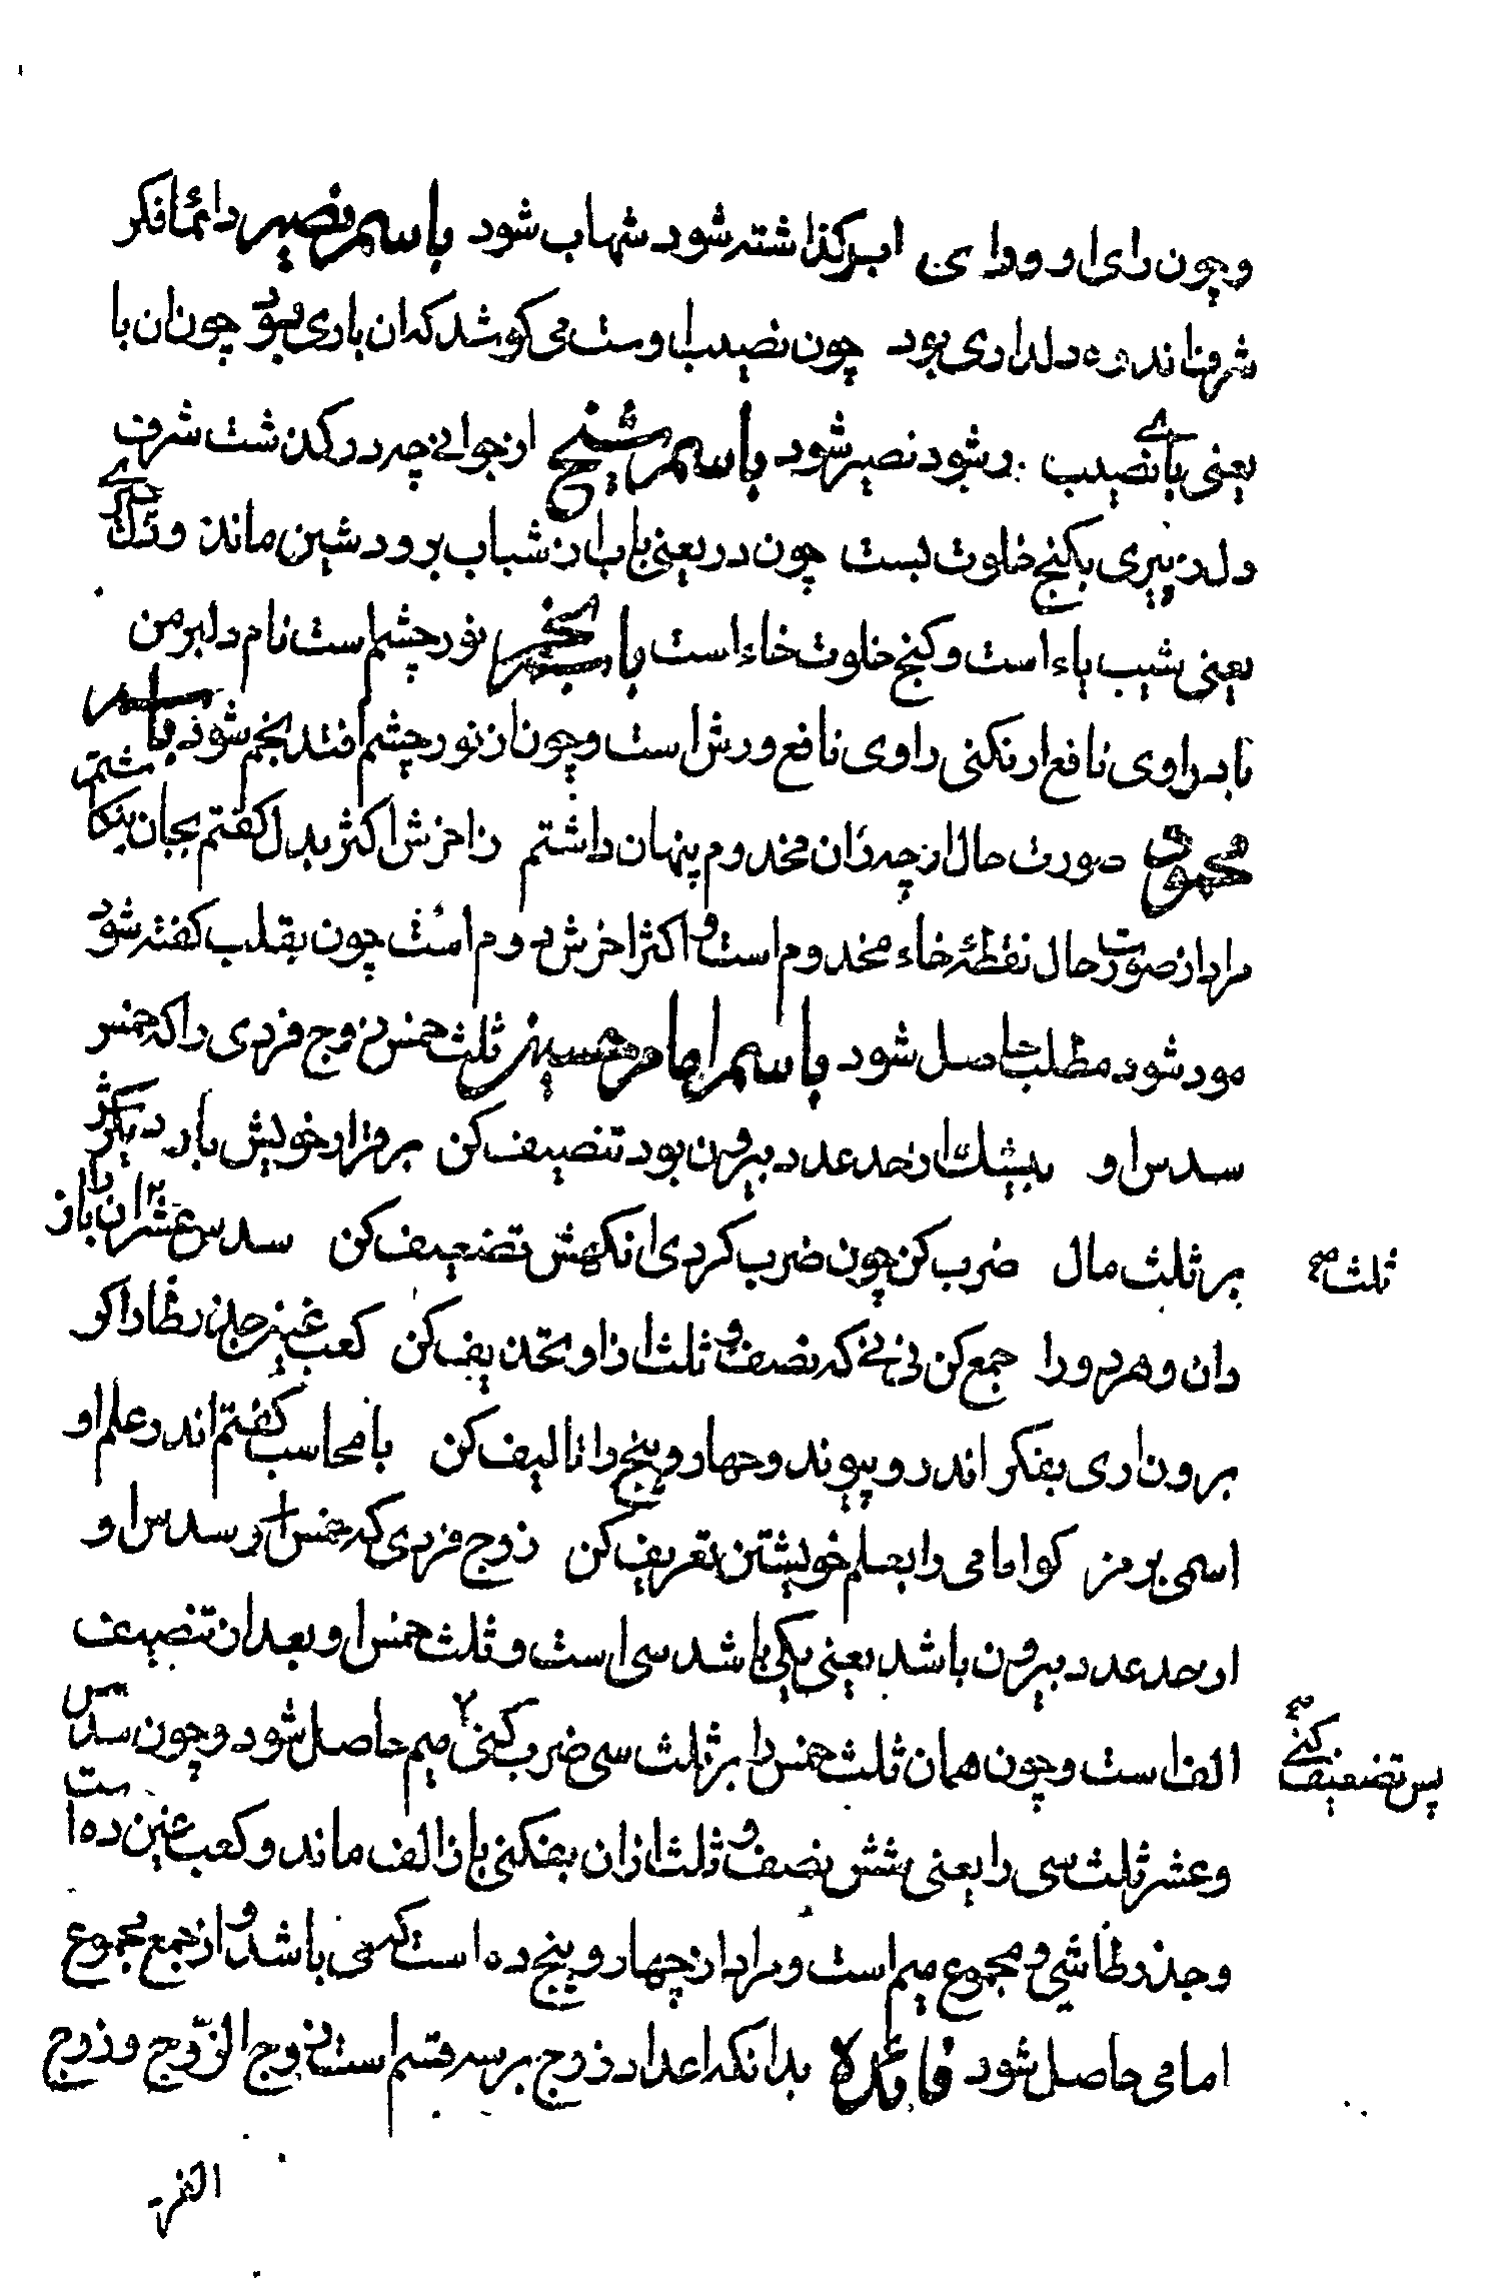 وچون رای او ودای ابر کذاشته شود شهاب شود باسم نصیر دائما فکر
شرف اندوه دلداری بود چون نصیب اوست می کوشد که ان یاری بود چون ان با
یعنی بای نصیب رشود نصیر شود باسم شیخ از جوانی چه درکذشت شرف
دل در پیری بکنج خلوت بست چون در یعنی باب از شباب برود شین ماند و
یعنی شیب یاء است وکنج خلوت خاء است باسم نجم نور چشم است نام دلبر من
تا بدراوی نافع ار نکنی راوی نافع ورش است وچون از نور چشم افتد نجم شود باسم
محمود صورت حال ارچه زان مخدوم پنهان داشتم زاخرش اکثر بدل کفتم بجان
مراد از صورت حال نقطهٔ خاء مخدوم است و اکثر اخرش دوم است چون بقلب کفته شود
مود شود مطلب حاصل شود باسم امام حسین ثلث خمس زوج فردی را که خمس
سدس او بیشک از حد عدد بیرون بود تنصیف کن برقرار خویش بار دیکرش
بر ثلث مال ضرب کن چون ضرب کردی انکهش تضعیف کن سدس عشر ان را باز
ثلث صح
دان وهر دو را جمع کن نی نی که نصف و ثلث ازاو تحذیف کن کعب غین جذر ظا را کو
برون اری بفکر اندر و پیوند وچهار و پنج را تالیف کن با محاسب کفتم اندر علم او
اسمی برمز کو امامی را بعلم خویشتن تعریف کن زوج فردی که خمس سدس او
از حد عدد بیرون باشد یعنی یکی باشد سی است و ثلث خمس او بعد از تنصیف
الف است وچون همان ثلث خمس را بر ثلث سی ضرب کنی میم حاصل شود وچون سدس
پس تضعیف کنی صح
وعشر ثلث سی را یعنی شش نصف و ثلث ازان بفکنی باز الف ماند و کعب غین ده است
وجذر ظا سی و مجموع میم است و مراد از چهار و پنج ده است که می باشد و از جمع مجموع
امامی حاصل شود فائده بدانکه اعداد زوج بر سه قسم است زوج الزوج و زوج
الفرد